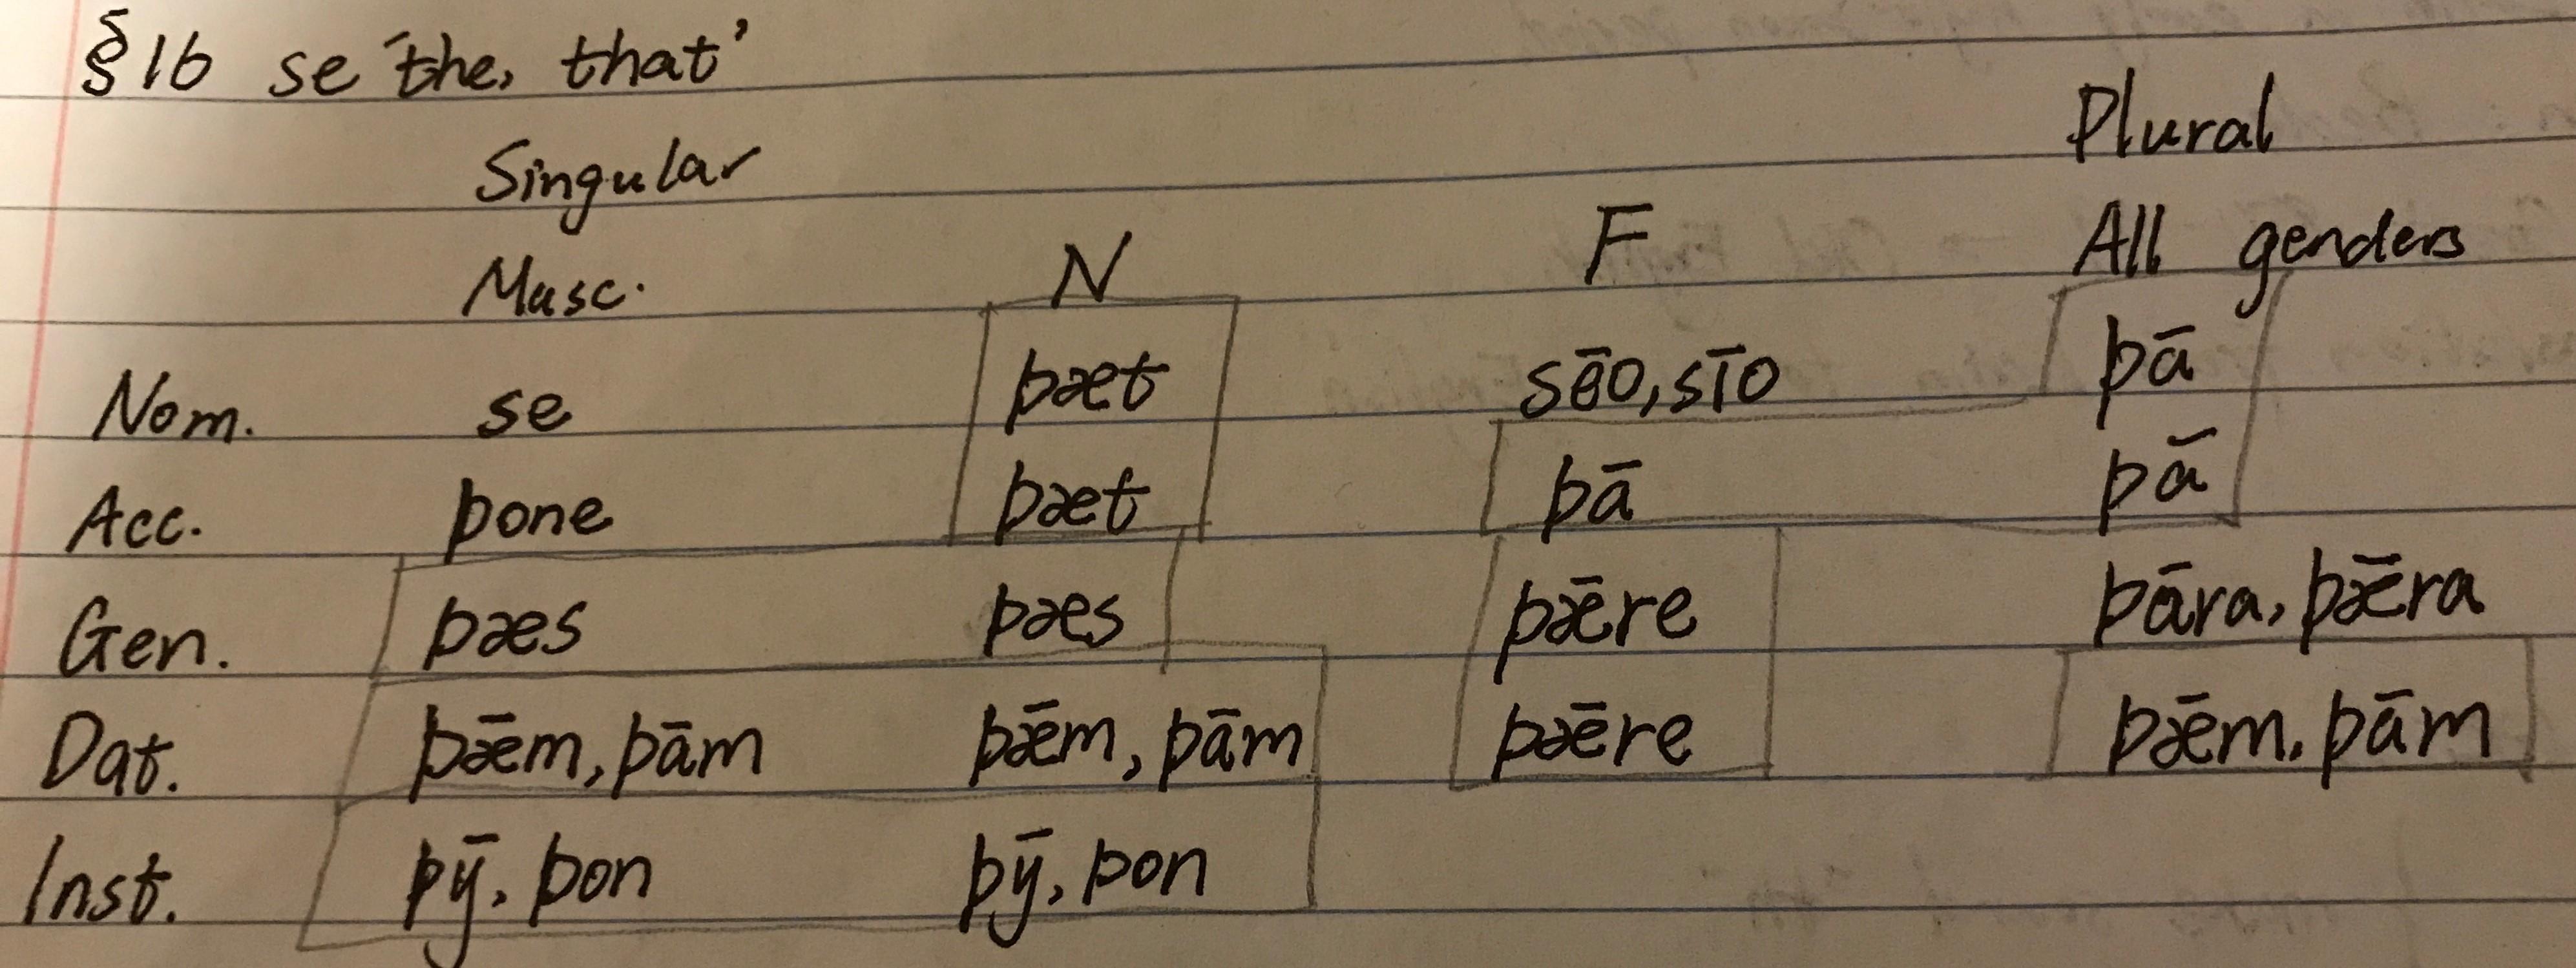 §16 se 'the, that'
Singular Plural
Masc. N F All genders
Nom. se þæt sēo, sīo þā
Acc. þone þæt þā þā
Gen. þæs þæs þǣre þāra, þǣra
Dat. þǣm, þām þǣm, þām þǣre þǣm, þām
Inst. þȳ, þon þȳ, þon